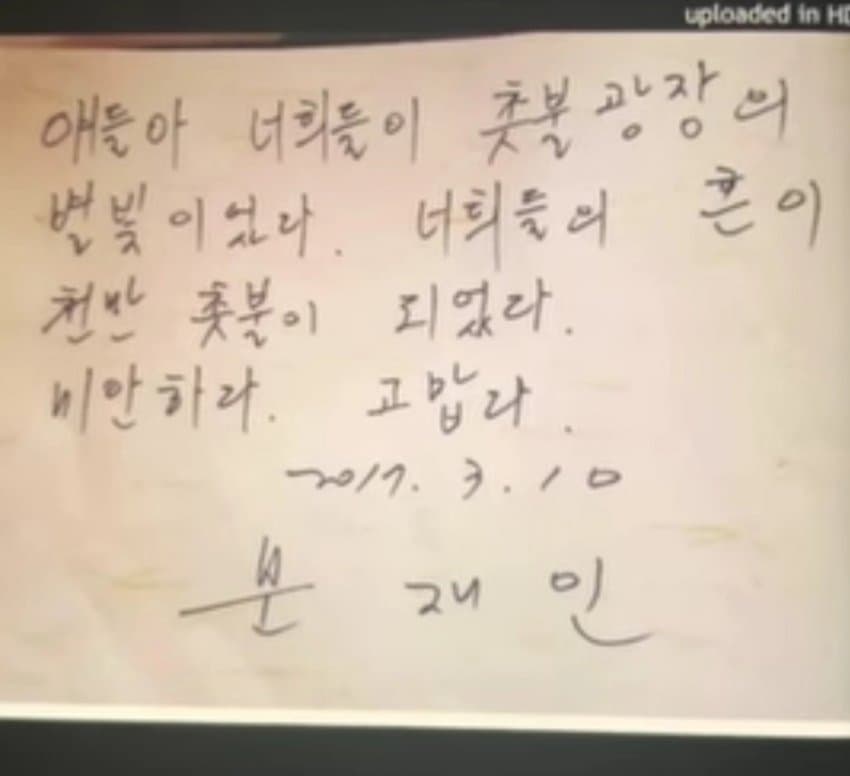 uploaded in HD
얘들아 너희들이 촛불광장의
별빛이었다. 너희들의 혼이
천만 촛불이 되었다.
미안하다. 고맙다.
2017. 3. 10
문 재 인